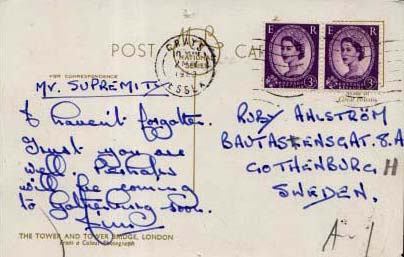 POST CARD
NATIONAL
SERIES
GRAYS
ESSEX
E R E R
3D 3D
FOR CORRESPONDENCE
MR. SUPREMITS
I haven't forgotten.
Trust you are
well. Perhaps
will be coming
to Gothenburg soon.
RUBY AHLSTRÖM
BAUTASTENSGAT. 8.A
GOTHENBURG H
SWEDEN.
THE TOWER AND TOWER BRIDGE, LONDON
From a Colour Photograph